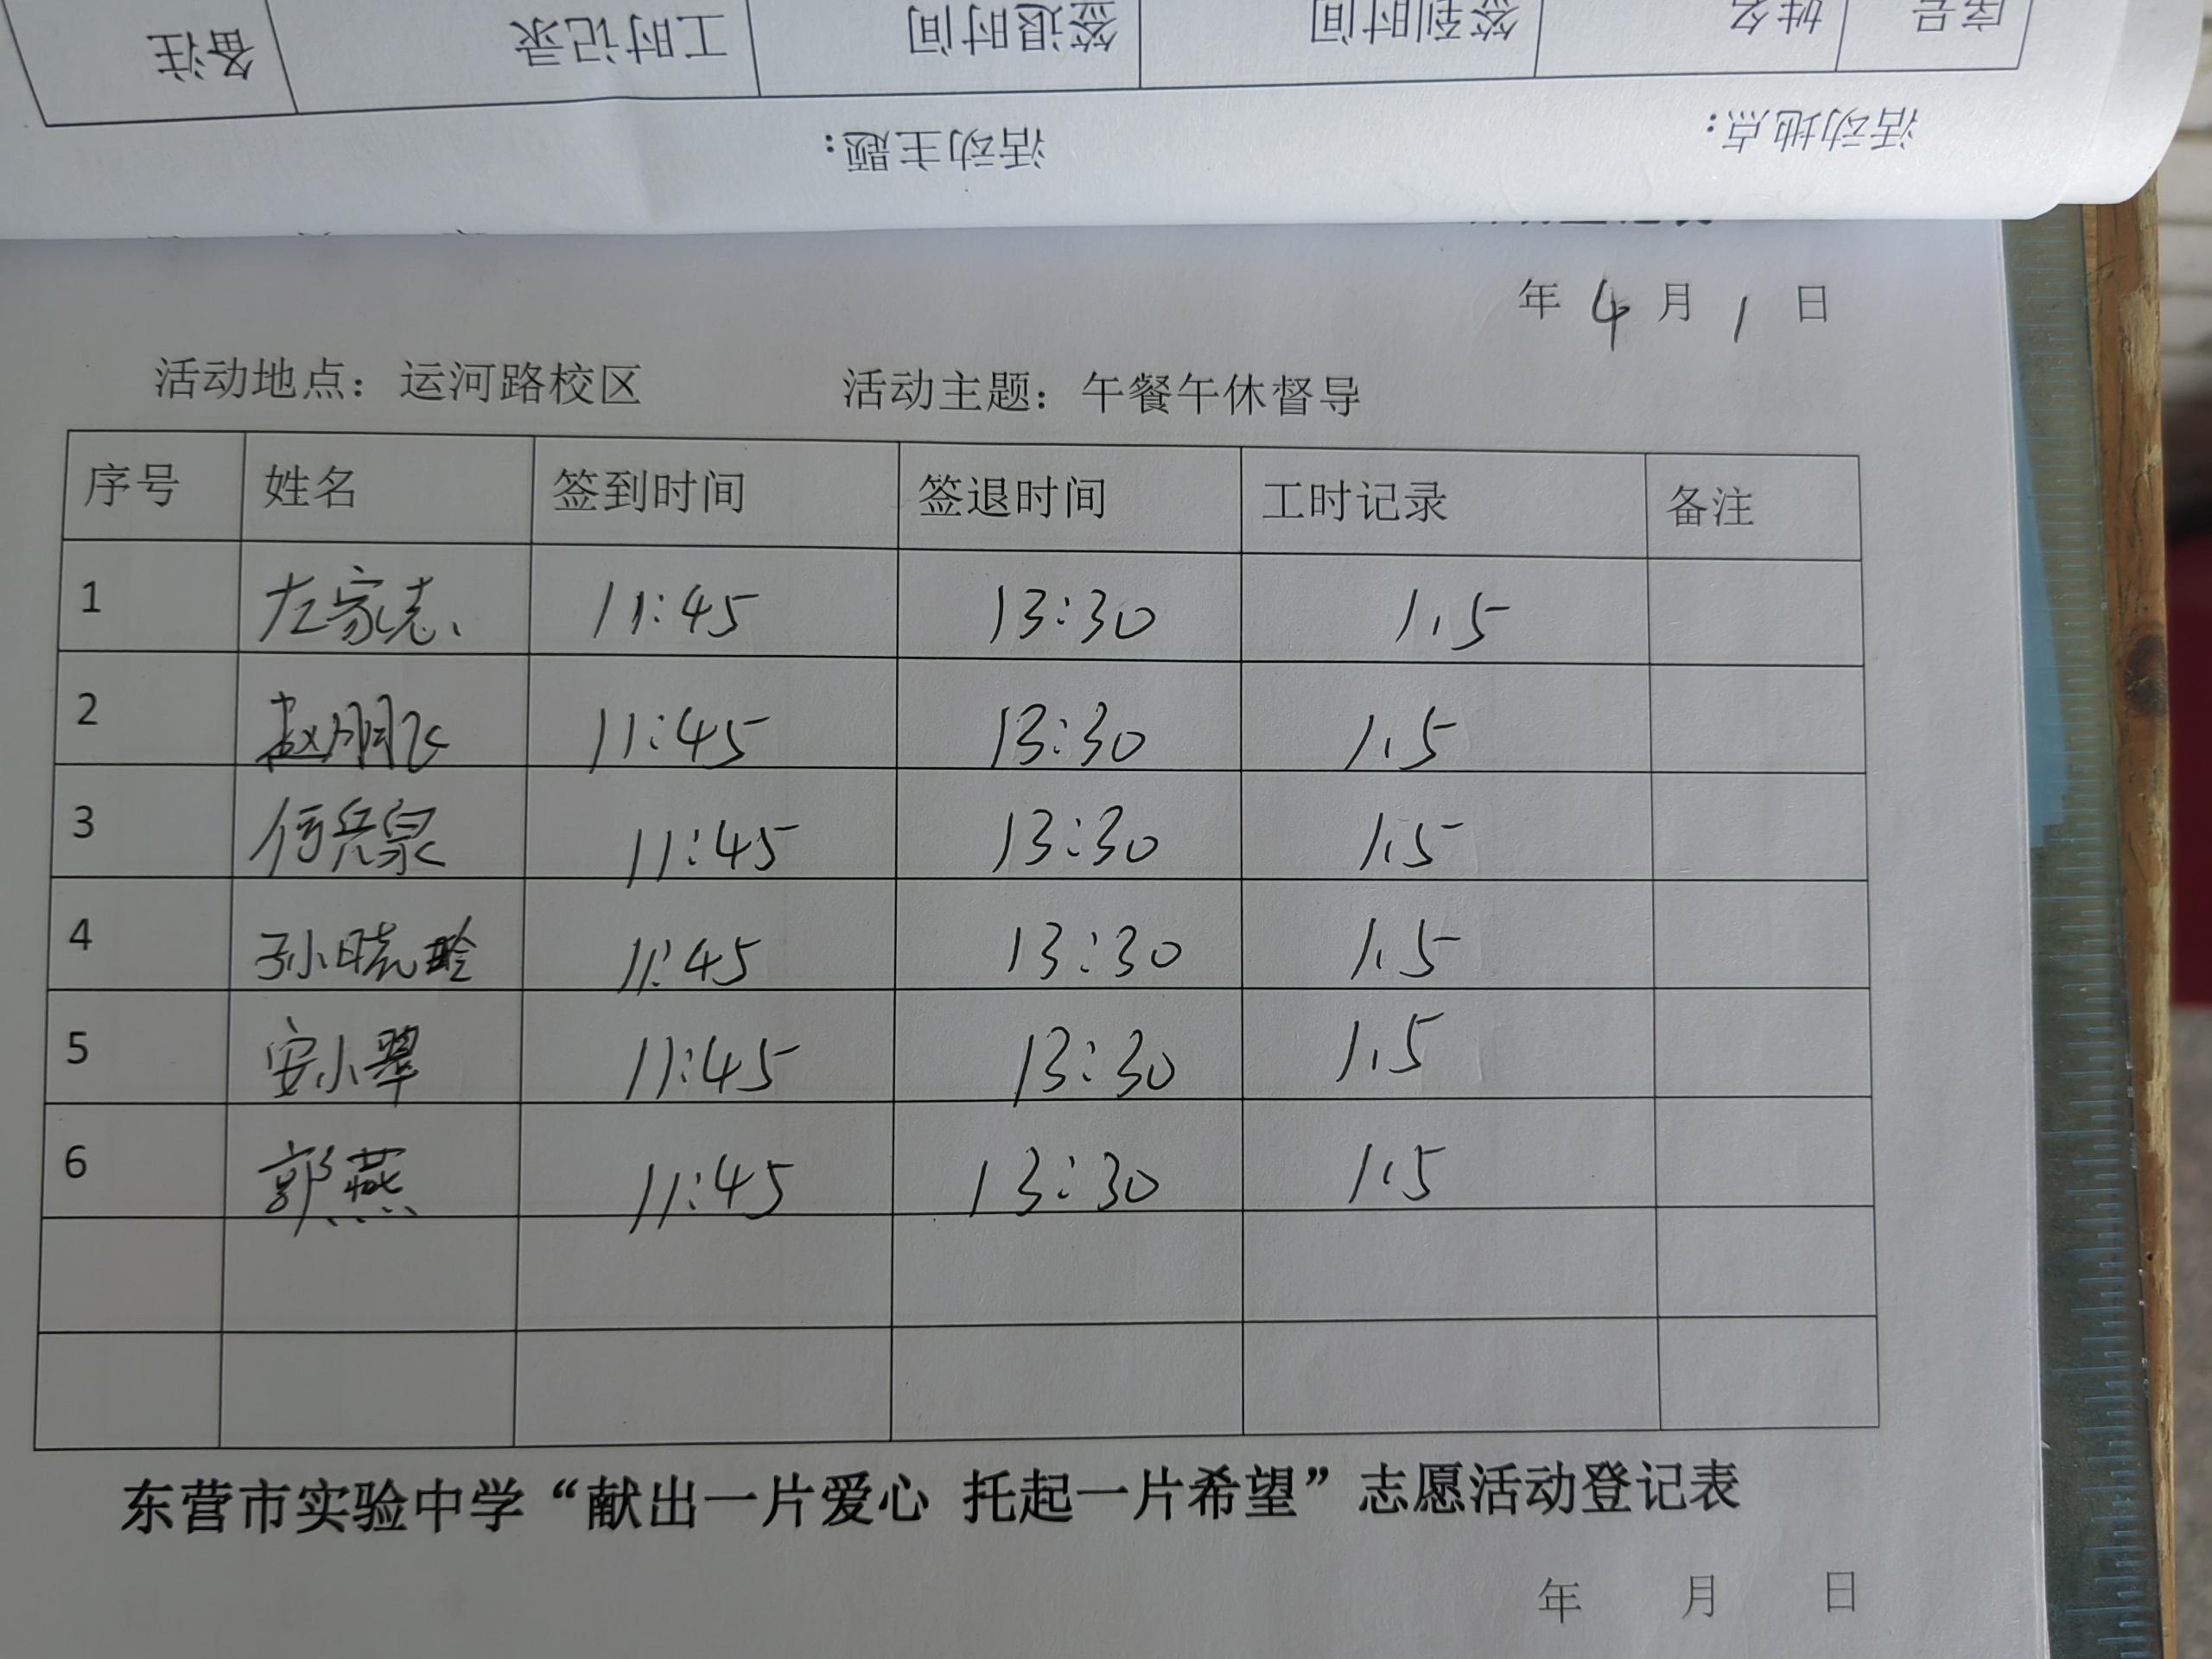 备注 工时记录 签退时间 签到时间 姓名 序号
活动主题： 活动地点：
年 4 月 1 日
活动地点：运河路校区 活动主题：午餐午休督导
序号 姓名 签到时间 签退时间 工时记录 备注
1 左家志 11:45 13:30 1.5
2 赵鹏飞 11:45 13:30 1.5
3 信兵泉 11:45 13:30 1.5
4 孙晓玲 11:45 13:30 1.5
5 安小翠 11:45 13:30 1.5
6 郭燕 11:45 13:30 1.5
东营市实验中学“献出一片爱心 托起一片希望”志愿活动登记表
年 月 日